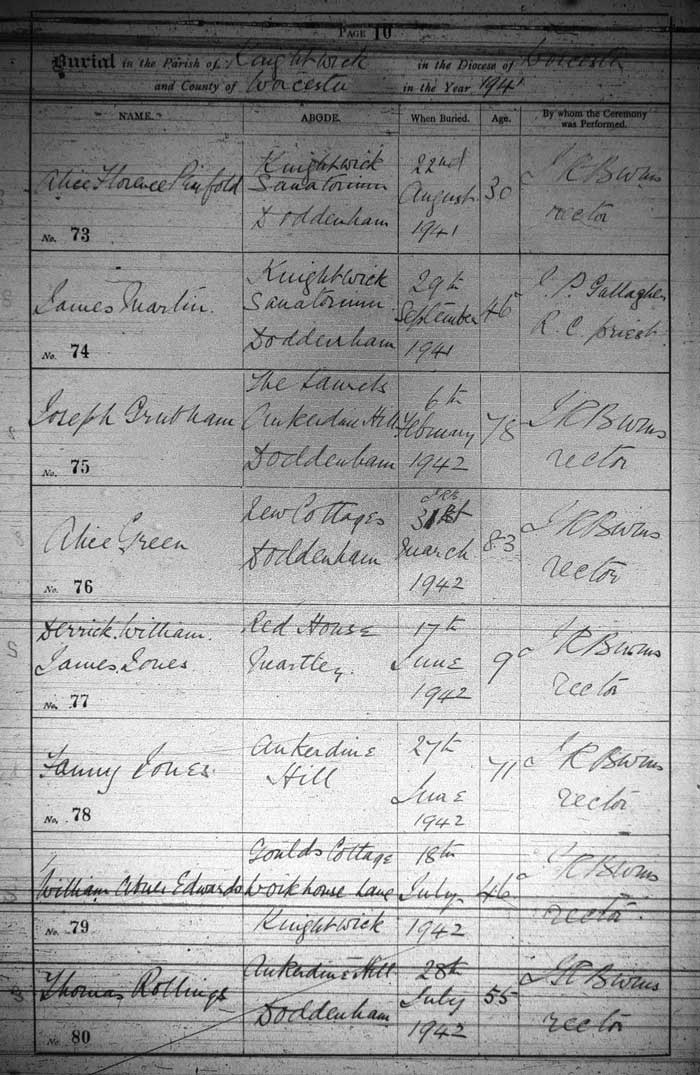 PAGE 10
Burial in the Parish of Knightwick in the Diocese of Worcester
and County of Worcester in the Year 1941
NAME. ABODE. When Buried. Age. By whom the Ceremony was Performed.
Alice Florence Pinfold
No. 73
Knightwick
Sanatorium
Doddenham
22nd
August
1941
30
J R B
rector
James Martin.
No. 74
Knightwick
Sanatorium
Doddenham
29th
September
1941
46
J. P. Gallagher
R. C. priest
Joseph Grubham
No. 75
The Laurels
Ankerdine Hill
Doddenham
6th
February
1942
78
J R B
rector
Alice Green
No. 76
New Cottages
Doddenham
31st
March
1942
83
J R B
rector
Derrick William
James Jones
No. 77
Red House
Martley.
17th
June
1942
9
J R B
rector
Fanny Jones
No. 78
Ankerdine
Hill
27th
June
1942
71
J R B
rector
William Abner Edwards
No. 79
Goulds Cottage
Workhouse Lane
Knightwick
18th
July
1942
46
J R B
rector
Thomas Rollings
No. 80
Ankerdine Hill
Doddenham
28th
July
1942
55
J R B
rector